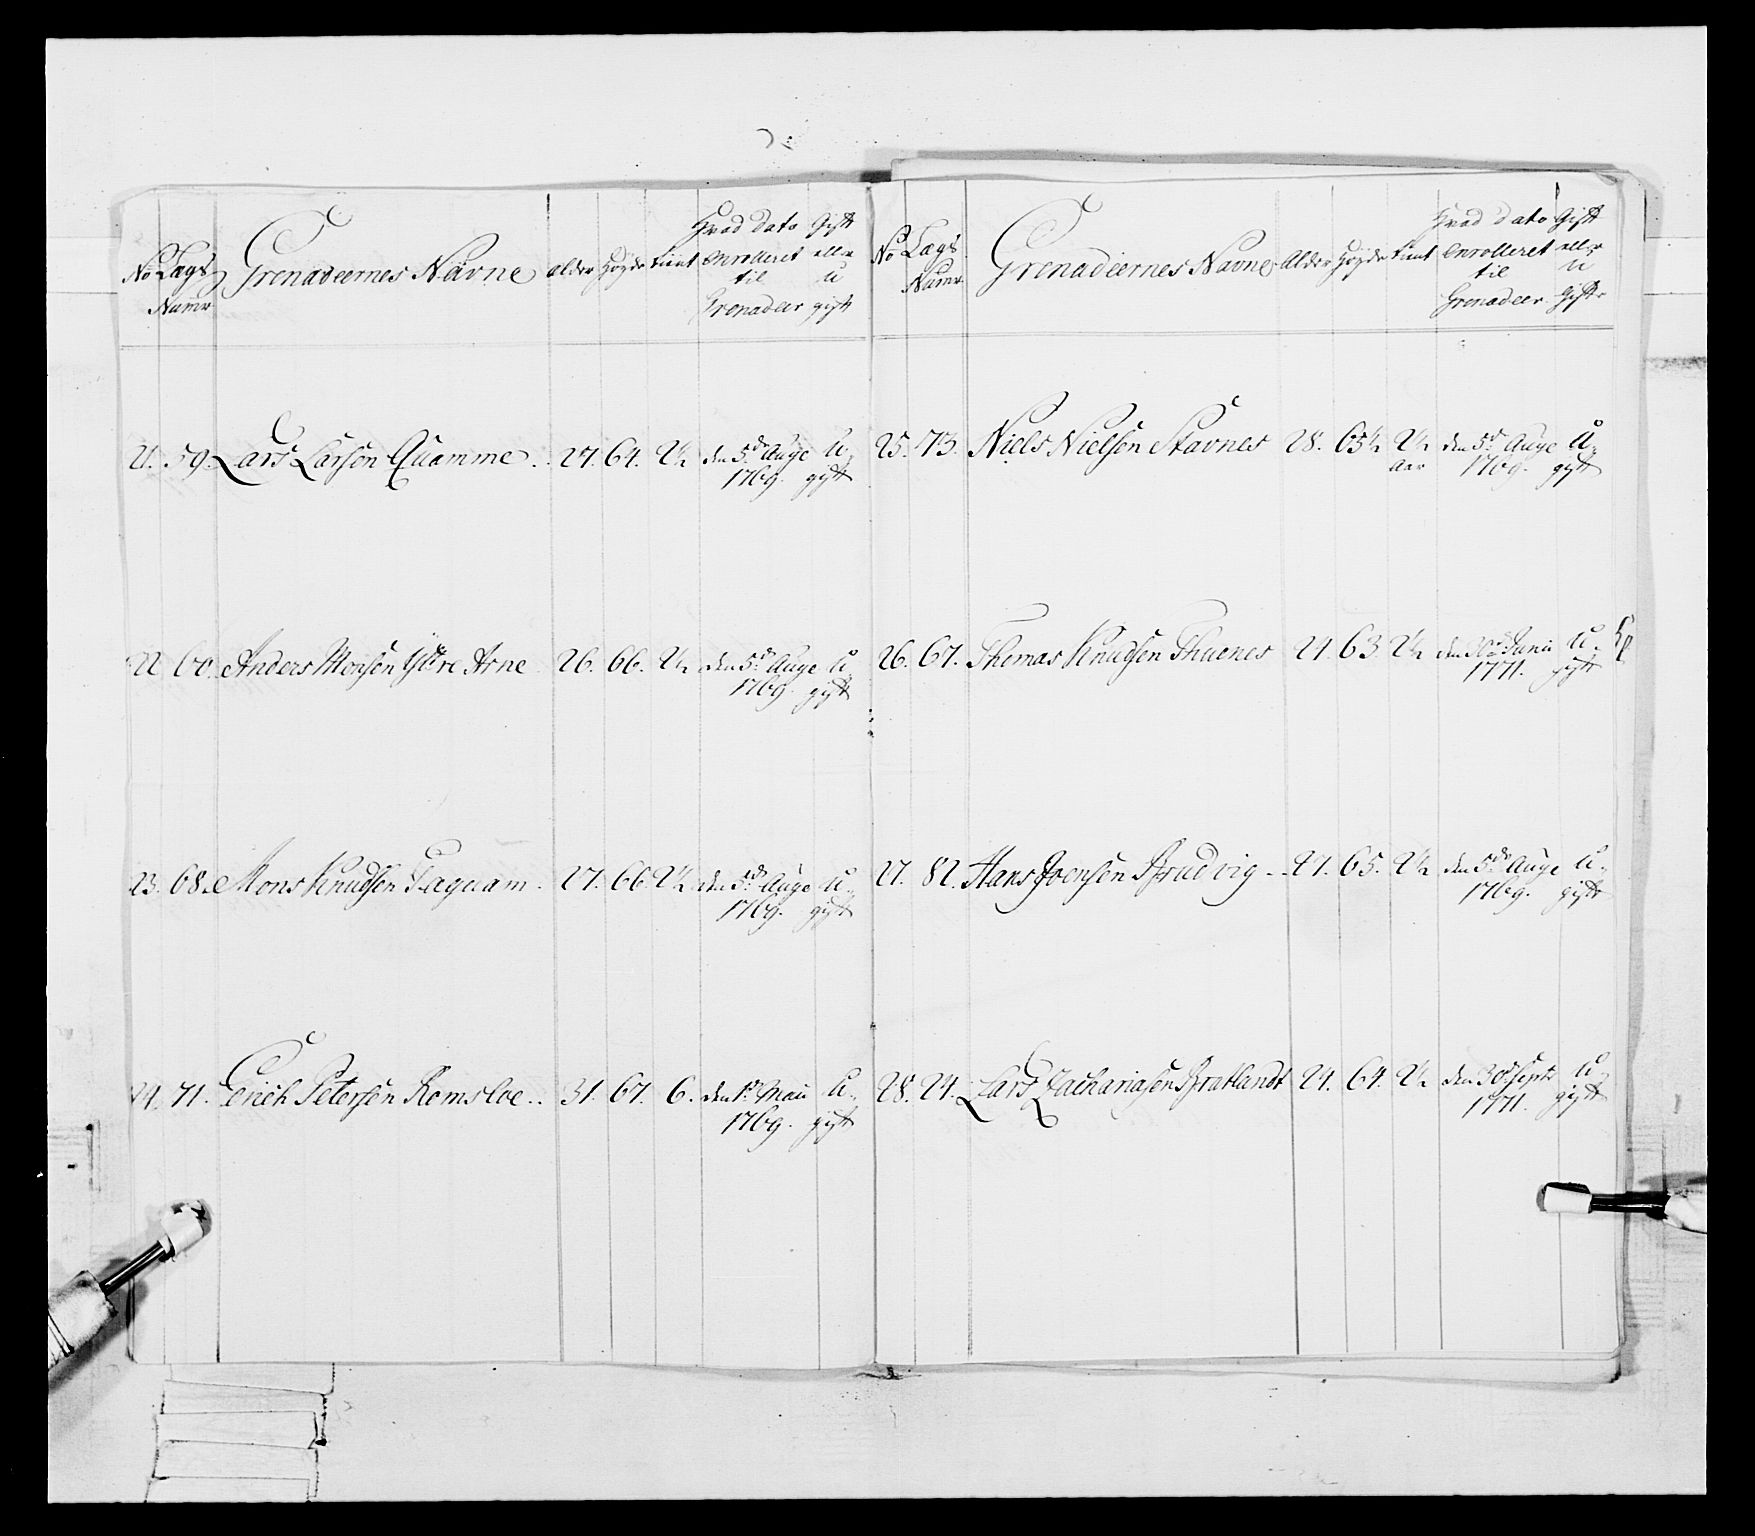 No Lægs Numr Grenadeernes Navne alder Høyde tient Hvad dato Enrolleret til Grenadeer Gift eller u gift
21. 59. Lars Larsen Quamme. 27. 64. 2½ den 5de Auge 1769. U- gift
22 60. Anders Monsen Ydre Arne 26. 66. 2½ den 5de Auge 1769. U- gift
23. 68. Mons Knudsen Taquam. 27. 66. 2½ den 5de Auge 1769. U- gift
24. 71. Erich Petersen Romsloe.. 31. 67. 6. den 1te Maii 1769. U- gift
No Lægs Numr Grenadeernes Navne Alder Høyde tient Hvad dato Enrolleret til Grenadeer Gift eller u Gift
25. 73. Niels Nielsen Stavnes 28. 65½ 2½ Aar den 5te Auge 1769. U- gift
26. 67. Thomas Knudsen Thuenes 24. 63 2½ den 30te Junii 1771. U- gift
27. 82. Hans Joensen Brudvig - 27. 65. 2½ den 5de Auge 1769. U- gift
28. 24. Lars Zachariasen Bratlandt 24. 64. 2½ den 30te Septr 1771. U- gift